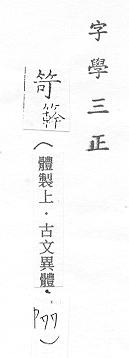 字學三正
笴簳(體製上．古文異體．P77)